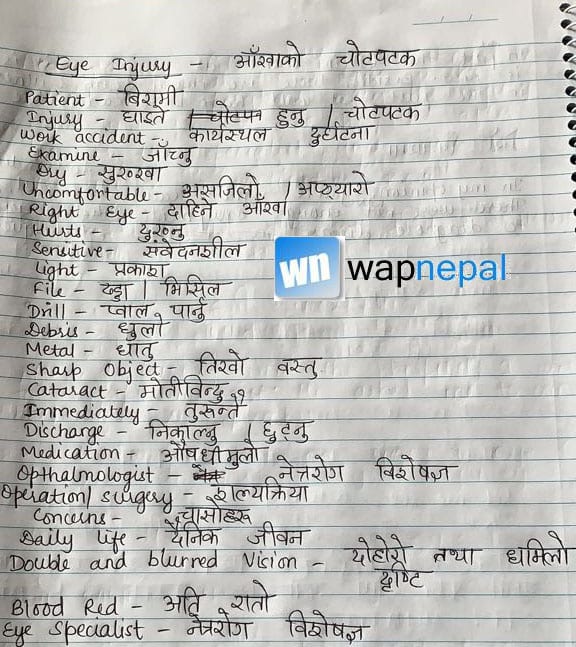 Eye Injury - आँखाको चोटपटक
Patient - बिरामी
Injury - घाइते / चोटपटक हुनु / चोटपटक
Work accident - कार्यस्थल दुर्घटना
Examine - जाँच्नु
Dry - सुख्खा
Uncomfortable - असजिलो / अप्ठ्यारो
Right Eye - दाहिने आँखा
Hurts - दुख्नु
Sensitive - संवेदनशील
Light - प्रकाश
wn wapnepal
File - मिसिल
Drill - प्वाल पार्नु
Debris - धुलो
Metal - धातु
Sharp Object - तिखो वस्तु
Cataract - मोतीविन्दु
Immediately - तुरुन्तै
Discharge - निकाल्नु / छुट्नु
Medication - औषधीमुलो
Opthalmologist - नेत्ररोग विशेषज्ञ
Operation/surgery - शल्यक्रिया
Concerns - चासोहरू
Daily life - दैनिक जीवन
Double and blurred Vision - दोहोरो तथा धमिलो
दृष्टि
Blood Red - अति रातो
Eye Specialist - नेत्ररोग विशेषज्ञ